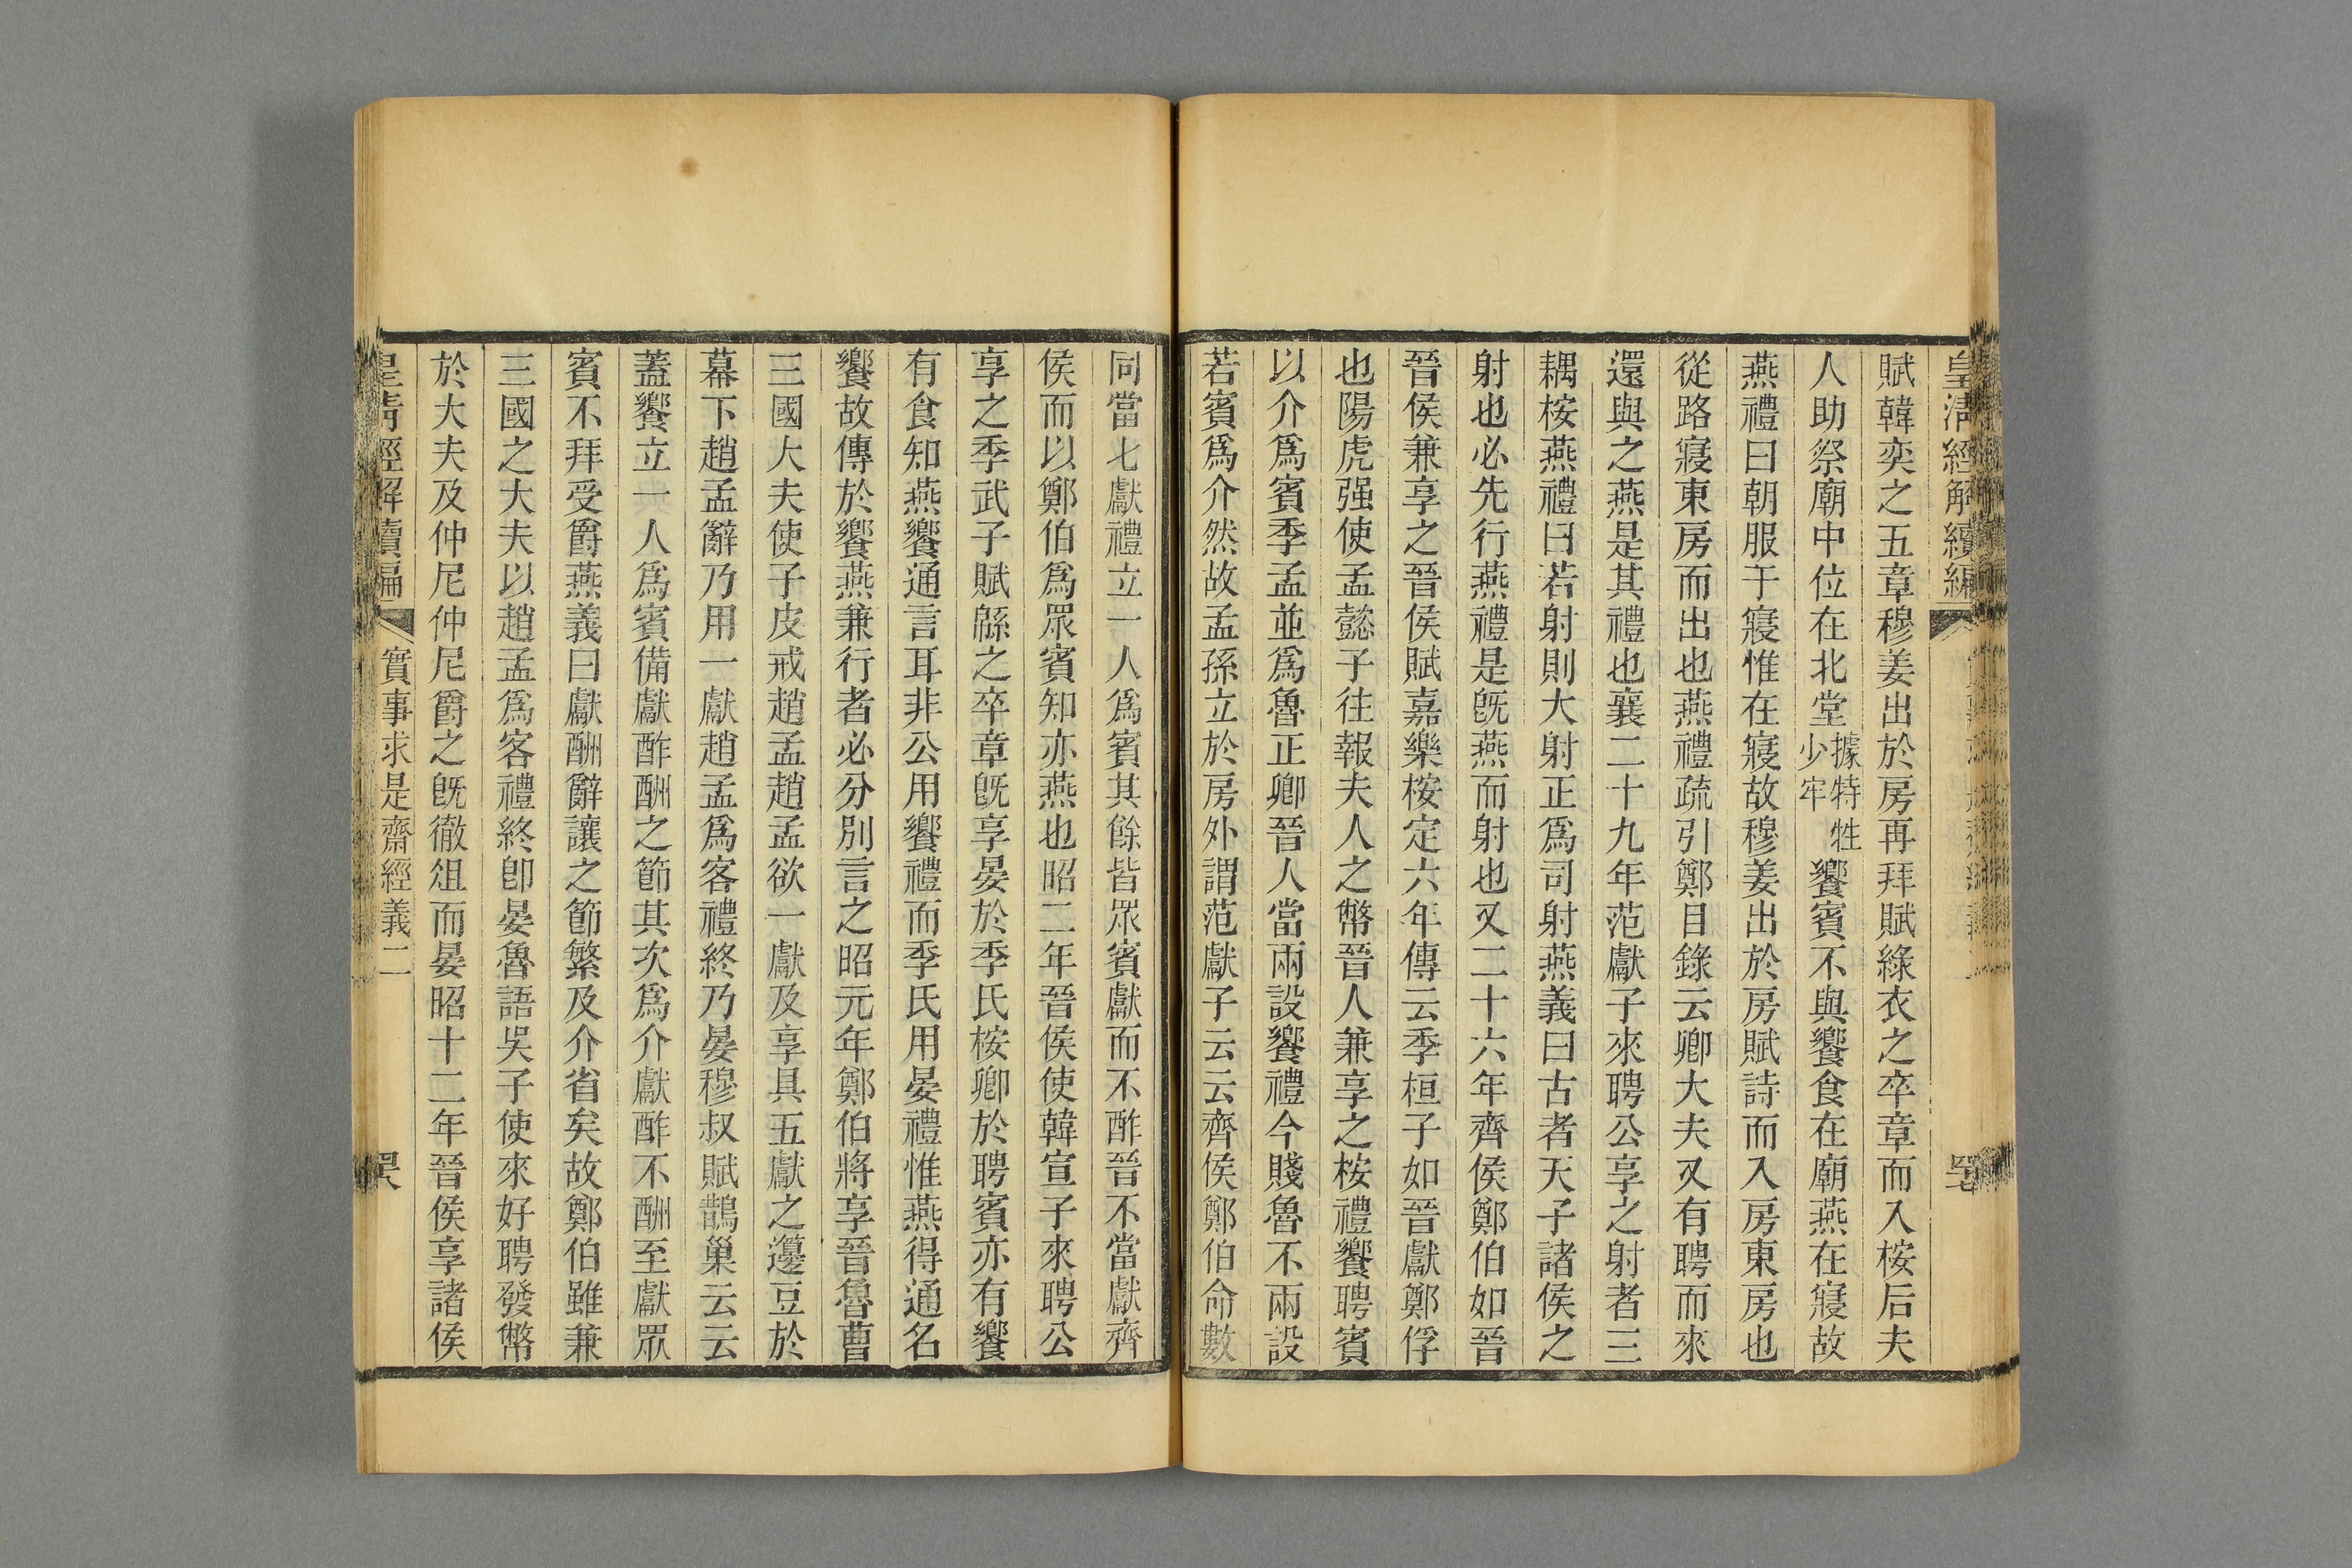 皇清經解續編
賦韓奕之五章穆姜出於房再拜賦綠衣之卒章而入桉后夫
人助祭廟中位在北堂據特牲少牢饗賓不與饗食在廟燕在寢故
燕禮曰朝服于寢惟在寢故穆姜出於房賦詩而入房東房也
從路寢東房而出也燕禮疏引鄭目錄云卿大夫又有聘而來
還與之燕是其禮也襄二十九年范獻子來聘公享之射者三
耦桉燕禮曰若射則大射正爲司射燕義曰古者天子諸侯之
射也必先行燕禮是旣燕而射也又二十六年齊侯鄭伯如晉
晉侯兼享之晉侯賦嘉樂桉定六年傳云季桓子如晉獻鄭俘
也陽虎强使孟懿子往報夫人之幣晉人兼享之桉禮饗聘賓
以介爲賓季孟並爲魯正卿晉人當兩設饗禮今賤魯不兩設
若賓爲介然故孟孫立於房外謂范獻子云云齊侯鄭伯命數
同當七獻禮立一人爲賓其餘皆眾賓獻而不酢晉不當獻齊
侯而以鄭伯爲眾賓知亦燕也昭二年晉侯使韓宣子來聘公
享之季武子賦緜之卒章旣享晏於季氏桉卿於聘賓亦有饗
有食知燕饗通言耳非公用饗禮而季氏用晏禮惟燕得通名
饗故傳於饗燕兼行者必分別言之昭元年鄭伯將享晉魯曹
三國大夫使子皮戒趙孟趙孟欲一獻及享具五獻之籩豆於
幕下趙孟辭乃用一獻趙孟爲客禮終乃晏穆叔賦鵲巢云云
蓋饗立一人爲賓備獻酢酬之節其次爲介獻酢不酬至獻眾
賓不拜受爵燕義曰獻酬辭讓之節繁及介省矣故鄭伯雖兼
三國之大夫以趙孟爲客禮終卽晏魯語吳子使來好聘發幣
於大夫及仲尼仲尼爵之旣徹俎而晏昭十二年晉侯享諸侯
皇清經解續編 實事求是齋經義二